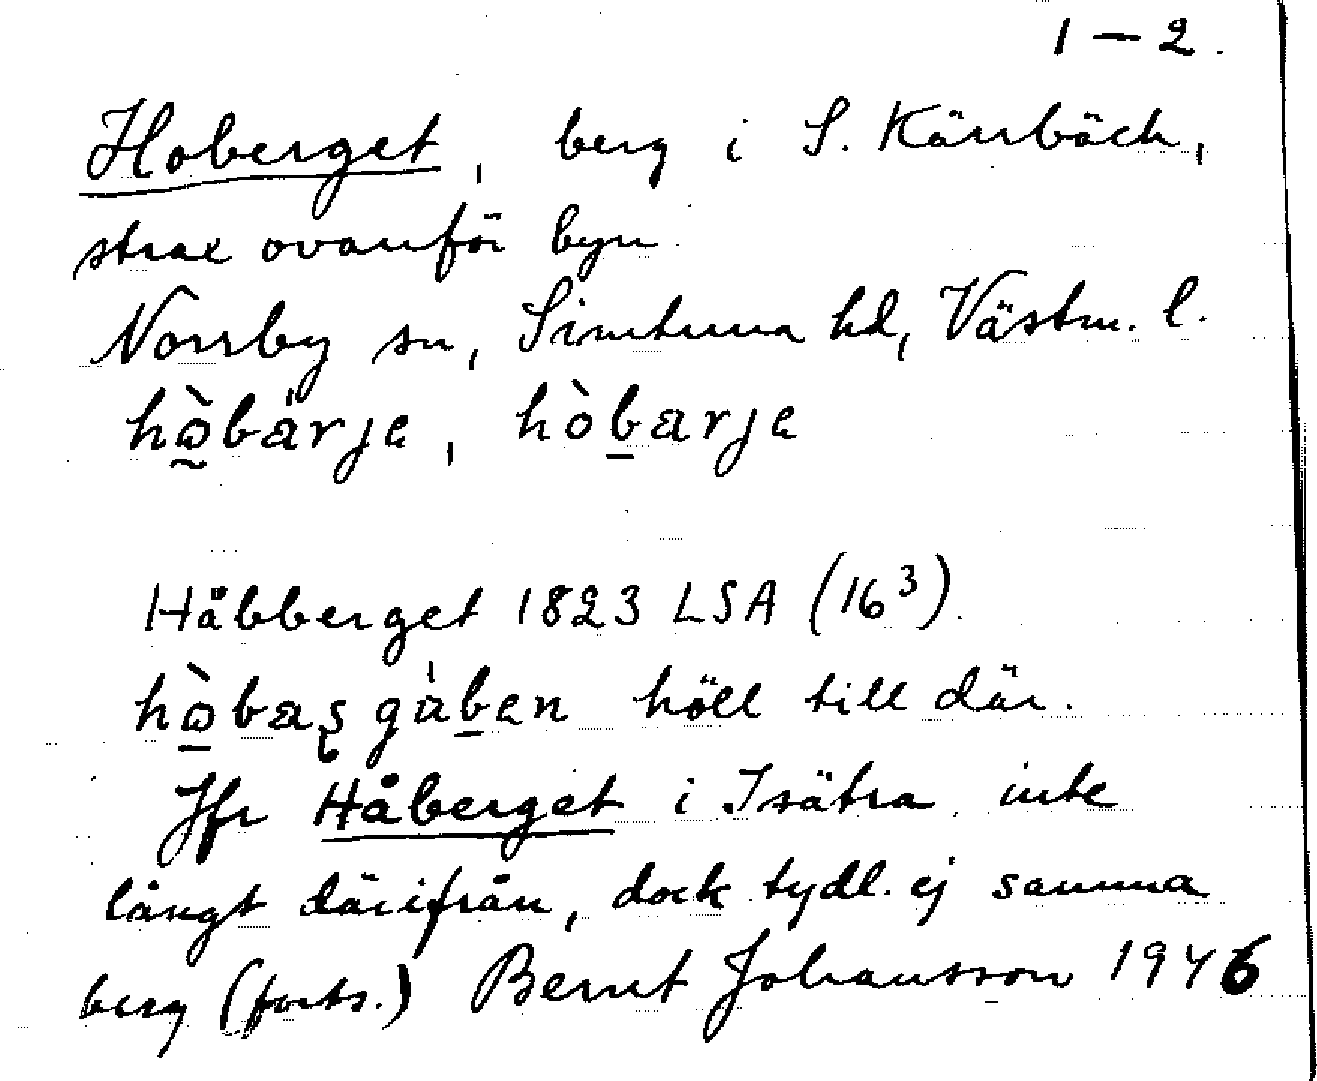 1 – 2.
Hoberget, berg i S. Kärrbäck,
strax ovanför byn.
Norrby sn, Simtuna hd, Västm. l.
hò̰bärje, hòb̲arje
Håbberget 1823 LSA (16³).
hò̲baʂ gàb̲en höll till där.
Jfr Håberget i Isätra inte
långt därifrån, dock tydl. ej samma
berg (forts.) Bernt Johansson 1946